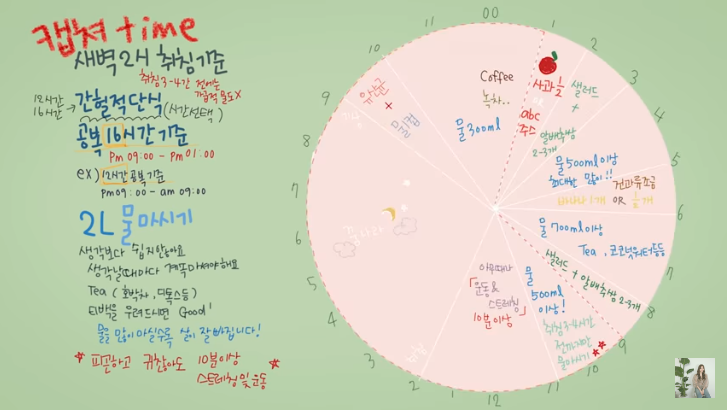 캡쳐 time
새벽 2시 취침기준
취침 3-4시간 전에는
가급적 물도 X
12시간
16시간 → 간헐적단식 (시간선택)
공복 16시간 기준
Pm 09:00 - Pm 01:00
ex) 12시간 공복 기준
Pm 09:00 - am 09:00
2L 물 마시기
생각보다 쉽지않아요
생각날때마다 계속 마셔야해요
Tea ( 호박차, 디톡스등 )
티백을 우려드시면 Good!
물을 많이 마실수록 살이 잘 빠집니다!
피곤하고 귀찮아도 10분이상
스트레칭 및 운동
00
1
2
3
4
5
6
7
8
9
10
11
12
1
2
3
4
5
6
7
8
9
10
11
유산균
물300ml
Coffee
녹차..
사과 1/2
or
abc
주스
샐러드
+
알배추쌈
2-3개
물500ml이상
최대한 많이!!
바나나 1개 OR 1/2개
견과류조금
물 700ml이상
Tea , 코코넛워터등등
샐러드 + 알배추쌈 2-3개
취침3-4시간
전까지만
물마시기
물
500ml
이상!
아무때나
운동 &
스트레칭
10분이상
꿈나라